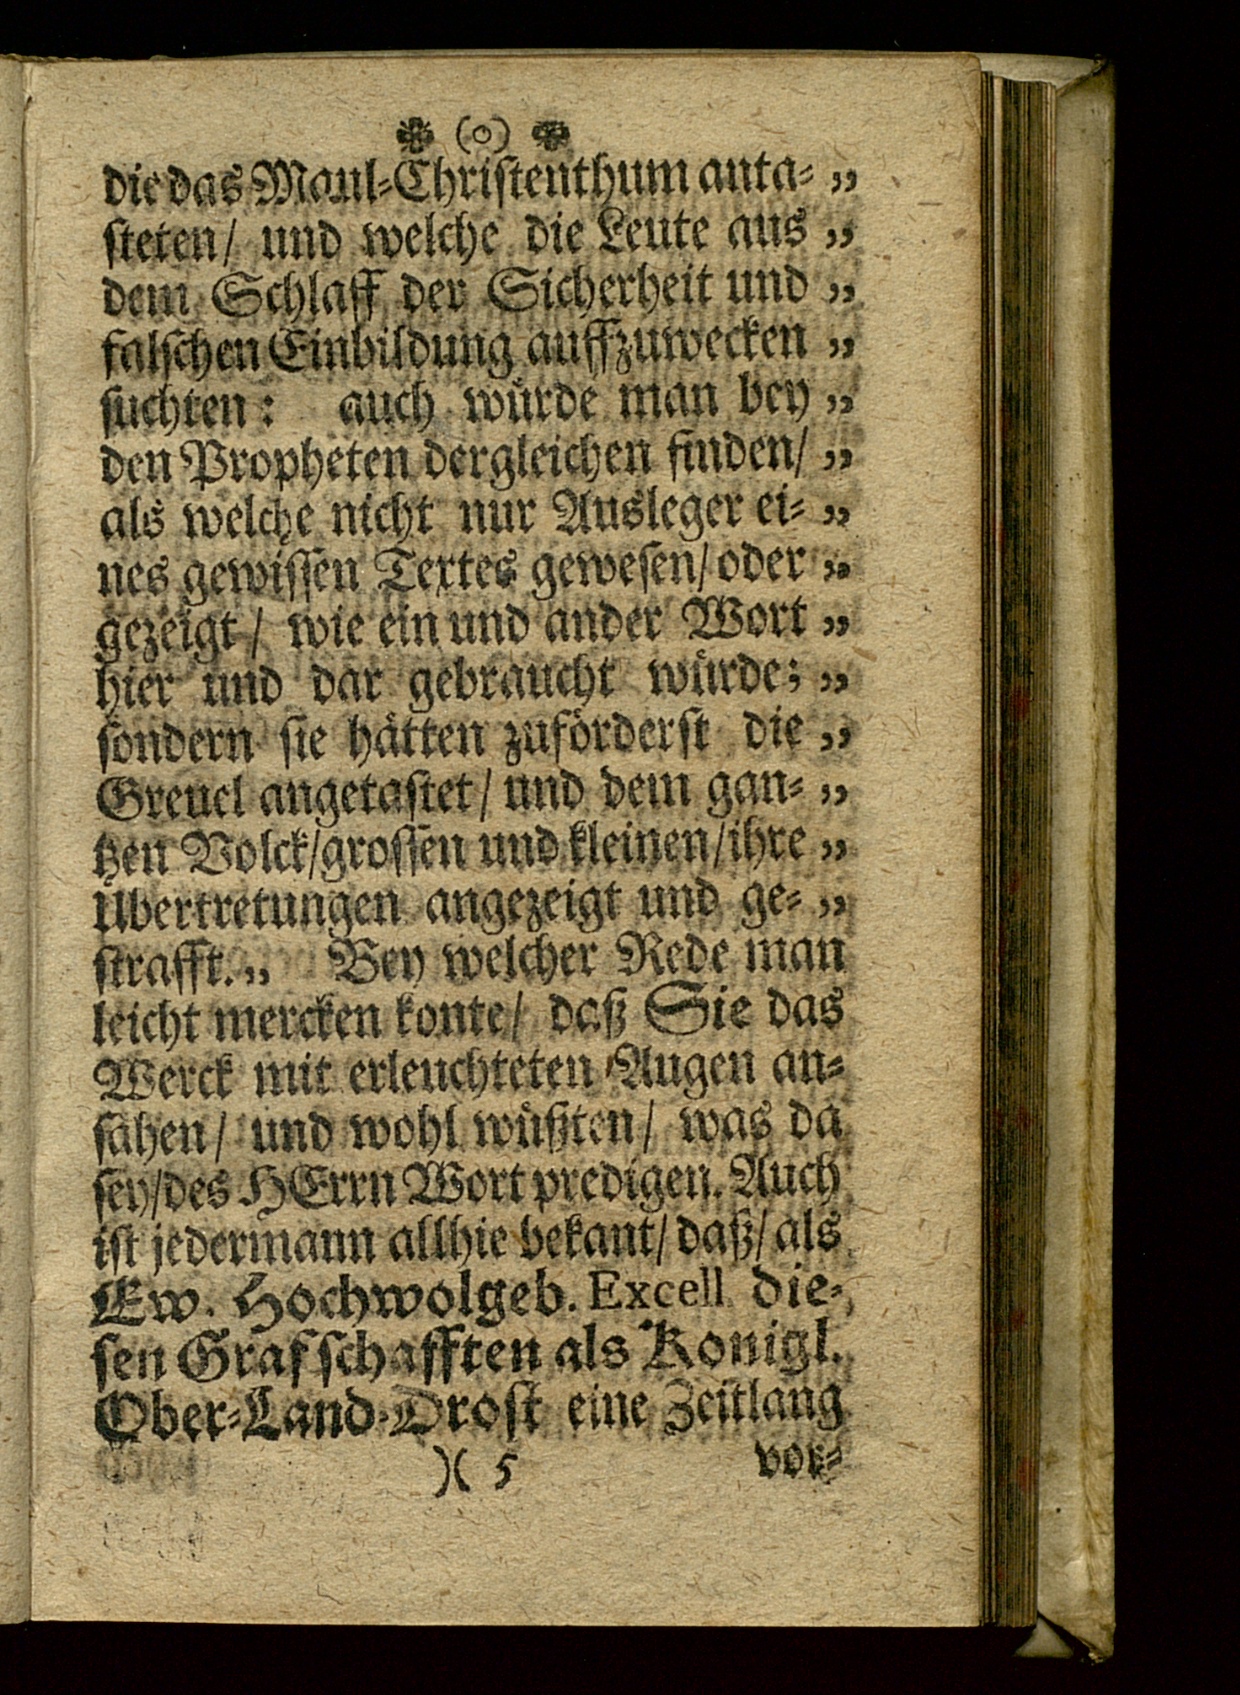 ❀ (o) ❀
die das Maul-Chriſtenthum anta- „
ſteten/ und welche die Leute aus „
dem Schlaff der Sicherheit und „
falſchen Einbildung auffzuwecken „
ſuchten: auch wuͤrde man bey „
den Propheten dergleichen finden/ „
als welche nicht nur Ausleger ei- „
nes gewiſſen Textes geweſen/ oder „
gezeigt/ wie ein und ander Wort „
hier und dar gebraucht wuͤrde; „
ſondern ſie haͤtten zufoͤrderſt die „
Greuel angetaſtet/ und dem gan- „
tzen Volck/groſſen und kleinen/ihre „
Ubertretungen angezeigt und ge- „
ſtrafft.„ Bey welcher Rede man
leicht mercken konte/ daß Sie das
Werck mit erleuchteten Augen an-
ſaͤhen/ und wohl wuͤßten/ was da
ſey/des HErrn Wort predigen. Auch
iſt jedermann allhie bekant/ daß/ als
Ew. Hochwolgeb. Excell. die-
ſen Grafſchafften als Koͤnigl.
Ober-Land-Droſt eine Zeitlang
)( 5 vor-